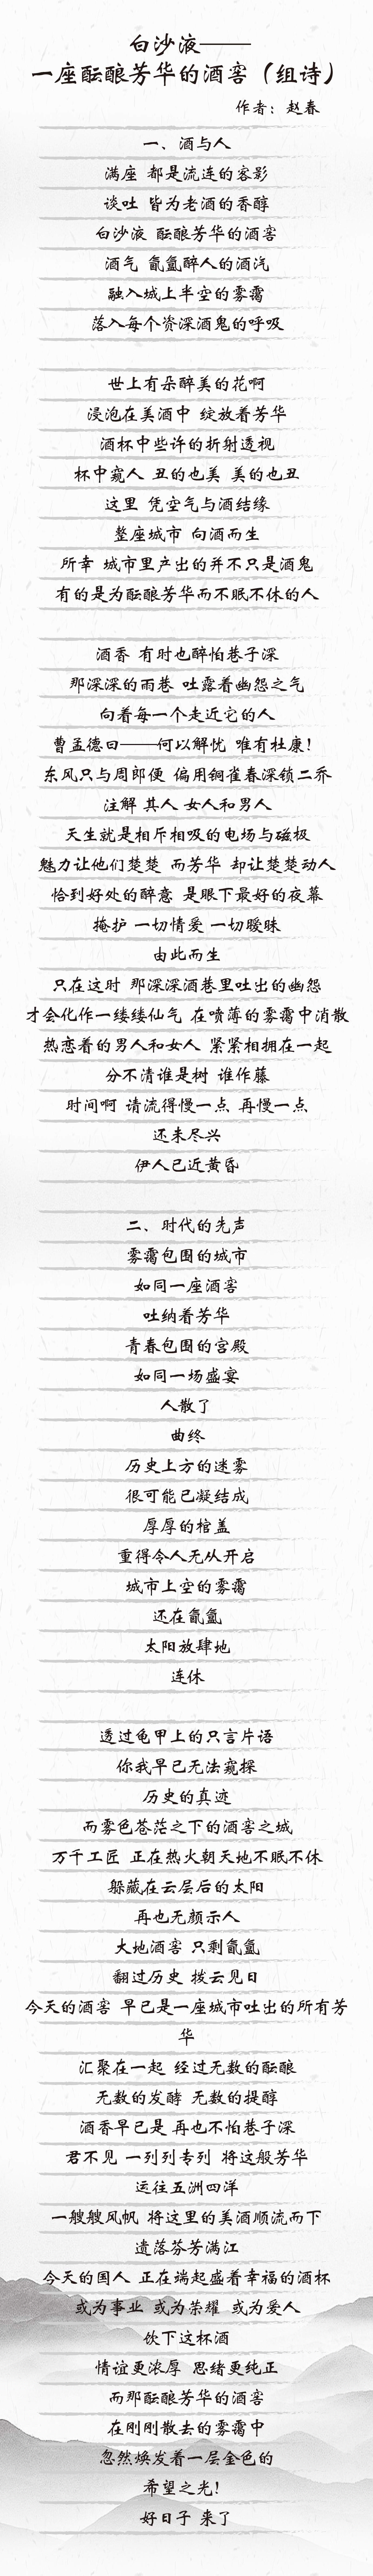 白沙液——
一座酝酿芳华的酒窖（组诗）
作者：赵春
一、酒与人
满座 都是流连的客影
谈吐 皆为老酒的香醇
白沙液 酝酿芳华的酒窖
酒气 氤氲醉人的酒汽
融入城上半空的雾霭
落入每个资深酒鬼的呼吸
世上有朵醉美的花啊
浸泡在美酒中 绽放着芳华
酒杯中些许的折射透视
杯中窥人 丑的也美 美的也丑
这里 凭空气与酒结缘
整座城市 向酒而生
所幸 城市里产出的并不只是酒鬼
有的是为酝酿芳华而不眠不休的人
酒香 有时也醉怕巷子深
那深深的雨巷 吐露着幽怨之气
向着每一个走近它的人
曹孟德曰——何以解忧 唯有杜康！
东风只与周郎便 偏用铜雀春深锁二乔
注解 其人 女人和男人
天生就是相斥相吸的电场与磁极
魅力让他们楚楚 而芳华 却让楚楚动人
恰到好处的醉意 是眼下最好的夜幕
掩护 一切情爱 一切暧昧
由此而生
只在这时 那深深酒巷里吐出的幽怨
才会化作一缕缕仙气 在喷薄的雾霭中消散
热恋着的男人和女人 紧紧相拥在一起
分不清谁是树 谁作藤
时间啊 请流得慢一点 再慢一点
还未尽兴
伊人已近黄昏
二、时代的先声
雾霭包围的城市
如同一座酒窖
吐纳着芳华
青春包围的宫殿
如同一场盛宴
人散了
曲终
历史上方的迷雾
很可能已凝结成
厚厚的棺盖
重得令人无从开启
城市上空的雾霭
还在氤氲
太阳放肆地
连休
透过龟甲上的只言片语
你我早已无法窥探
历史的真迹
而雾色苍茫之下的酒窖之城
万千工匠 正在热火朝天地不眠不休
躲藏在云层后的太阳
再也无颜示人
大地酒窖 只剩氤氲
翻过历史 拨云见日
今天的酒窖 早已是一座城市吐出的所有芳
华
汇聚在一起 经过无数的酝酿
无数的发酵 无数的提醇
酒香早已是 再也不怕巷子深
君不见 一列列专列 将这般芳华
运往五洲四洋
一艘艘风帆 将这里的美酒顺流而下
遗落芬芳满江
今天的国人 正在端起盛着幸福的酒杯
或为事业 或为荣耀 或为爱人
饮下这杯酒
情谊更浓厚 思绪更纯正
而那酝酿芳华的酒窖
在刚刚散去的雾霭中
忽然焕发着一层金色的
希望之光！
好日子 来了